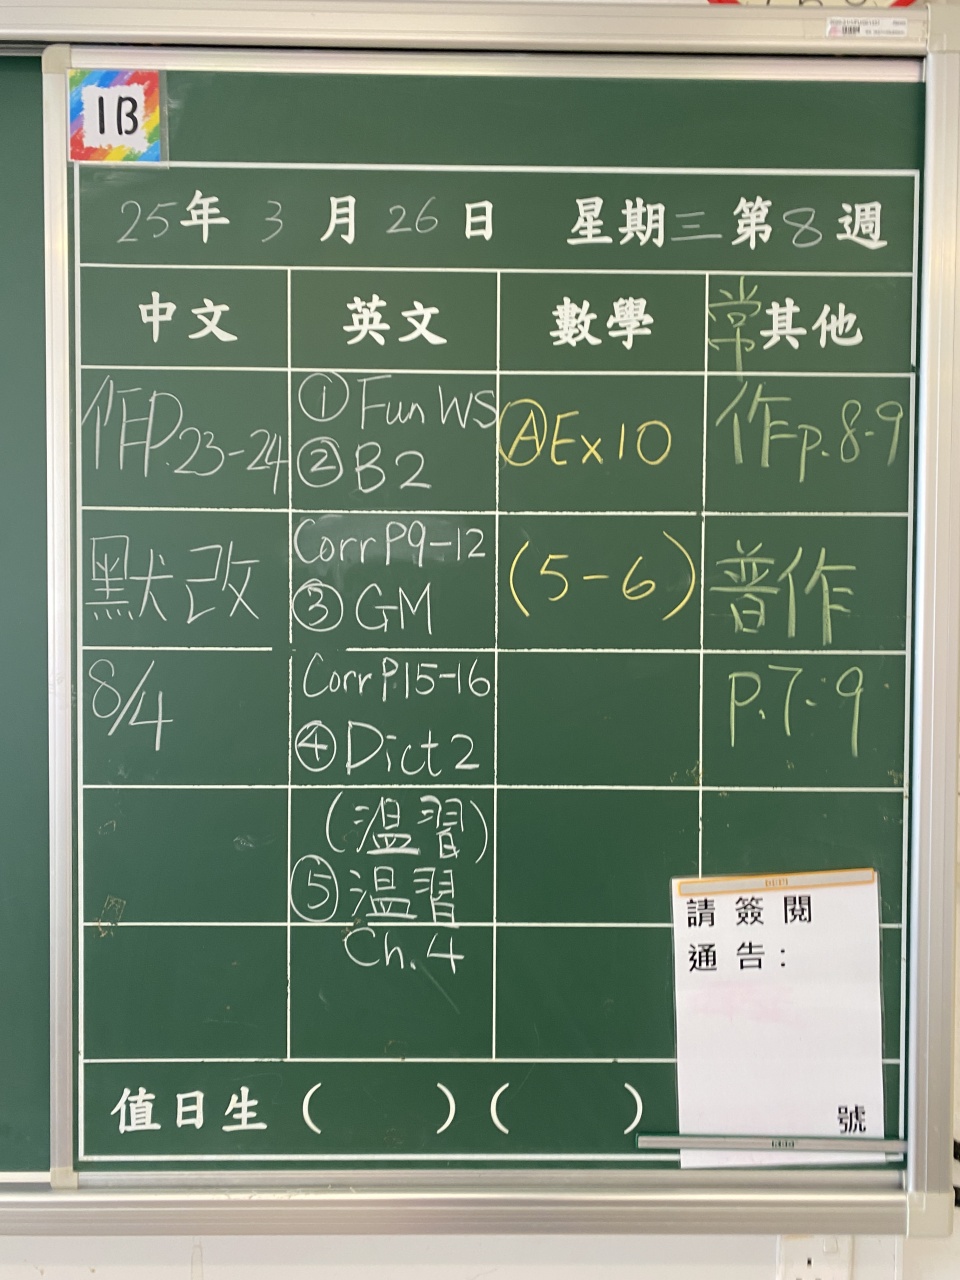 1B
25年 3月 26日 星期三第8週
中文 英文 數學 常其他
作P.23-24
默改
8/4
① Fun WS
② B2
Corr P9-12
③ GM
Corr P.15-16
④ Dict 2
(溫習)
⑤ 溫習
Ch.4
Ⓐ Ex 10
(5-6)
作p.8-9
普作
P.7-9
請簽閱
通告:
號
值日生 ( ) ( )